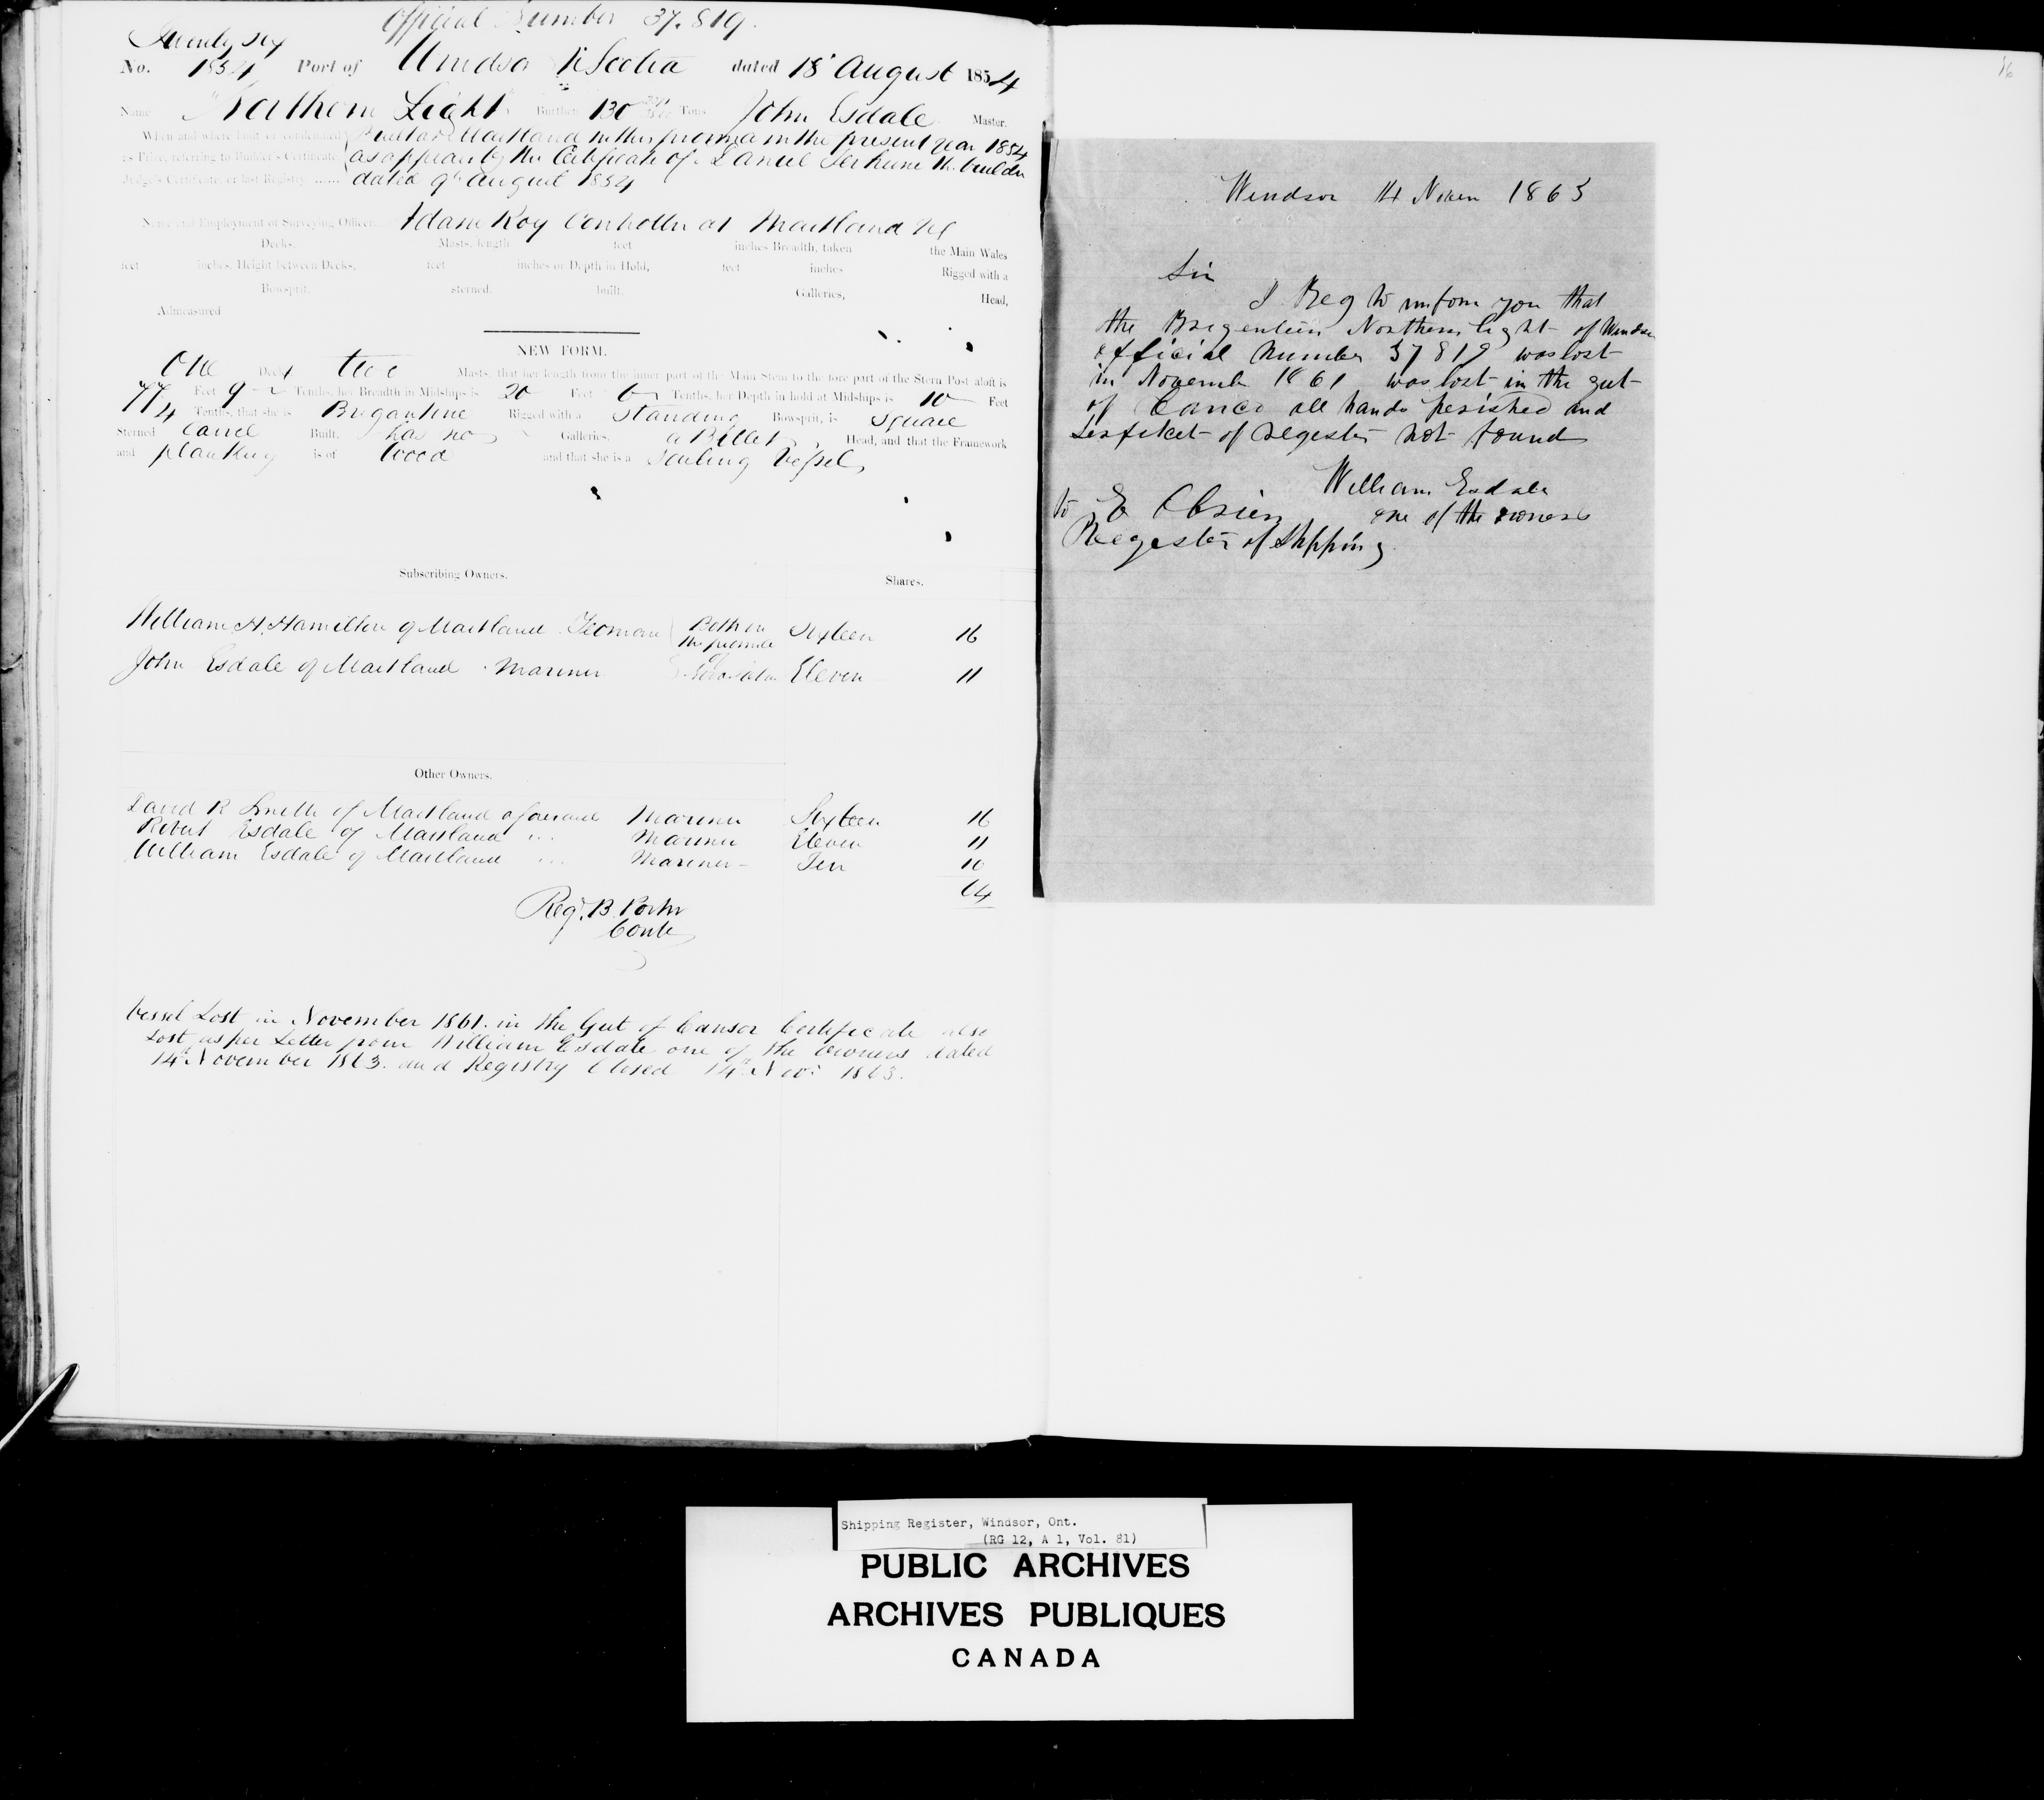 Official Number 37.819.
Twenty six
No. 1854 Port of Windsor N Scotia dated 18 August 1854
Name "Northern Light" Burthen 130 Tons John Esdale Master.
When and where built or condemned Built at Maitland in this province in the present year 1854
as Prize, referring to Builder's Certificate as appears by the Certificate of Daniel the builder
Judge's Certificate, or last Registry ...... dated 9th August 1854
Name and Employment of Surveying Officer. Adam Roy Controller at Maitland NS
Decks. Masts, length feet inches Breadth, taken the Main Wales
feet inches, Height between Decks, feet inches or Depth in Hold, feet inches Rigged with a
Bowsprit, sterned, built, Galleries, Head,
Admeasured
NEW FORM.
One Deck two Masts, that her length from the inner part of the Main Stem to the fore part of the Stern Post aloft is
77 Feet 9 Tenths, her Breadth in Midships is 20 Feet 6 Tenths, her Depth in hold at Midships is 10 Feet
4 Tenths, that she is Brigantine Rigged with a Standing Bowsprit, is Square
Sterned Carvel Built, has no Galleries, a Billet Head, and that the Framework
and planking is of Wood and that she is a Sailing Vessel,
Subscribing Owners. Shares.
William H. Hamilton of Maitland Yeoman Both in Sixteen 16
the province
of
John Esdale of Maitland Mariner Nova Scotia Eleven 11
Other Owners.
David R Smith of Maitland aforesaid Mariner Sixteen 16
Robert Esdale of Maitland " Mariner Eleven 11
William Esdale of Maitland " Mariner Ten 10
64
Reg. B. Porter
Contr
Vessel Lost in November 1861. in the Gut of Canso Certificate also
Lost, as per Letter from William Esdale one of the Owners dated
14th November 1863. and Registry Closed 14th Nov: 1863.
Windsor 14 Novem 1863
Sir
I Beg to imform you that
the Brigentien Northern light of Windsor
official Number 37819 was lost
in Novemb 1861 was lost in the gut
of Canco all hands perished and
Serfeket of Regester not found
William Esdale
one of the owners
to E Obrien
Regester of Shpping
Shipping Register, Windsor, Ont.
(RG 12, A 1, Vol. 81)
PUBLIC ARCHIVES
ARCHIVES PUBLIQUES
CANADA